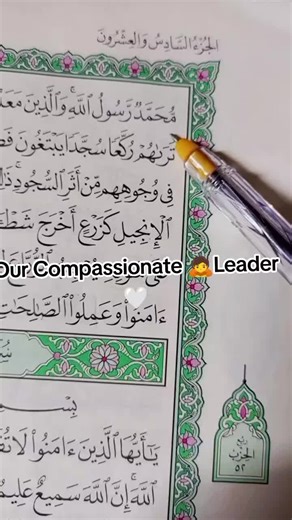 الجُزْءُ السَّادِسُ وَالعِشْرُونَ
مُّحَمَّدٌ رَّسُولُ ٱللَّهِ ۚ وَٱلَّذِينَ
تَرَىٰهُمْ رُكَّعًا سُجَّدًا يَبْتَغُونَ
فِى وُجُوهِهِم مِّنْ أَثَرِ ٱلسُّجُودِ ۚ
ٱلْإِنجِيلِ كَزَرْعٍ أَخْرَجَ
Our Compassionate 🙇Leader
🤍
ءَامَنُوا۟ وَعَمِلُوا۟ ٱلصَّـٰلِحَـٰتِ
يَـٰٓأَيُّهَا ٱلَّذِينَ ءَامَنُوا۟ لَا
ٱللَّهَ ۚ إِنَّ ٱللَّهَ سَمِيعٌ عَلِيمٌ
الحِزْب
٥٢